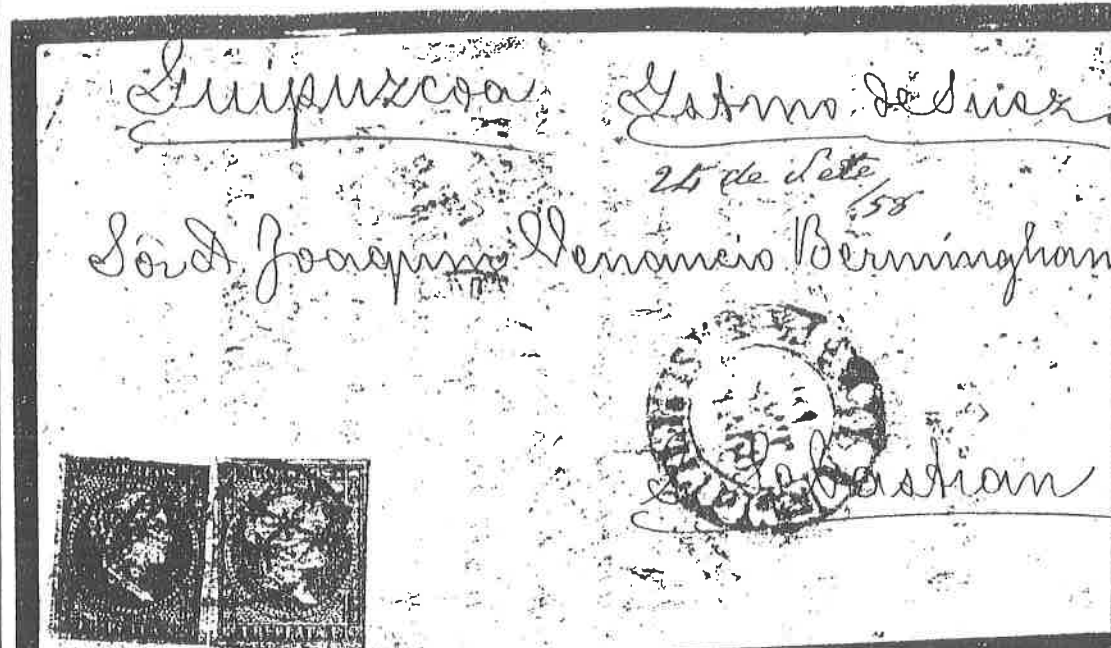 Guipuzcoa
Istmo de Suez
25 de Sete /58
Sor D Joaquin Venancio Bermingham
S. Sebastian